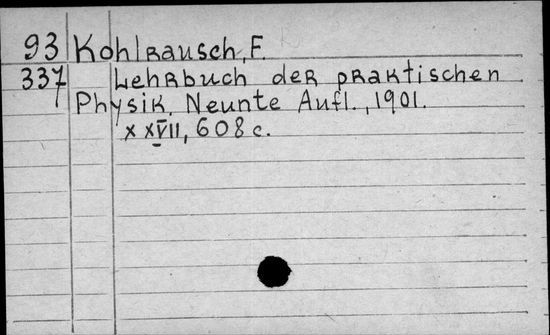 93 Kohlrausch, F.
337 Lehrbuch der praktischen
Physik. Neunte Aufl., 1901.
XXVII, 608 c.